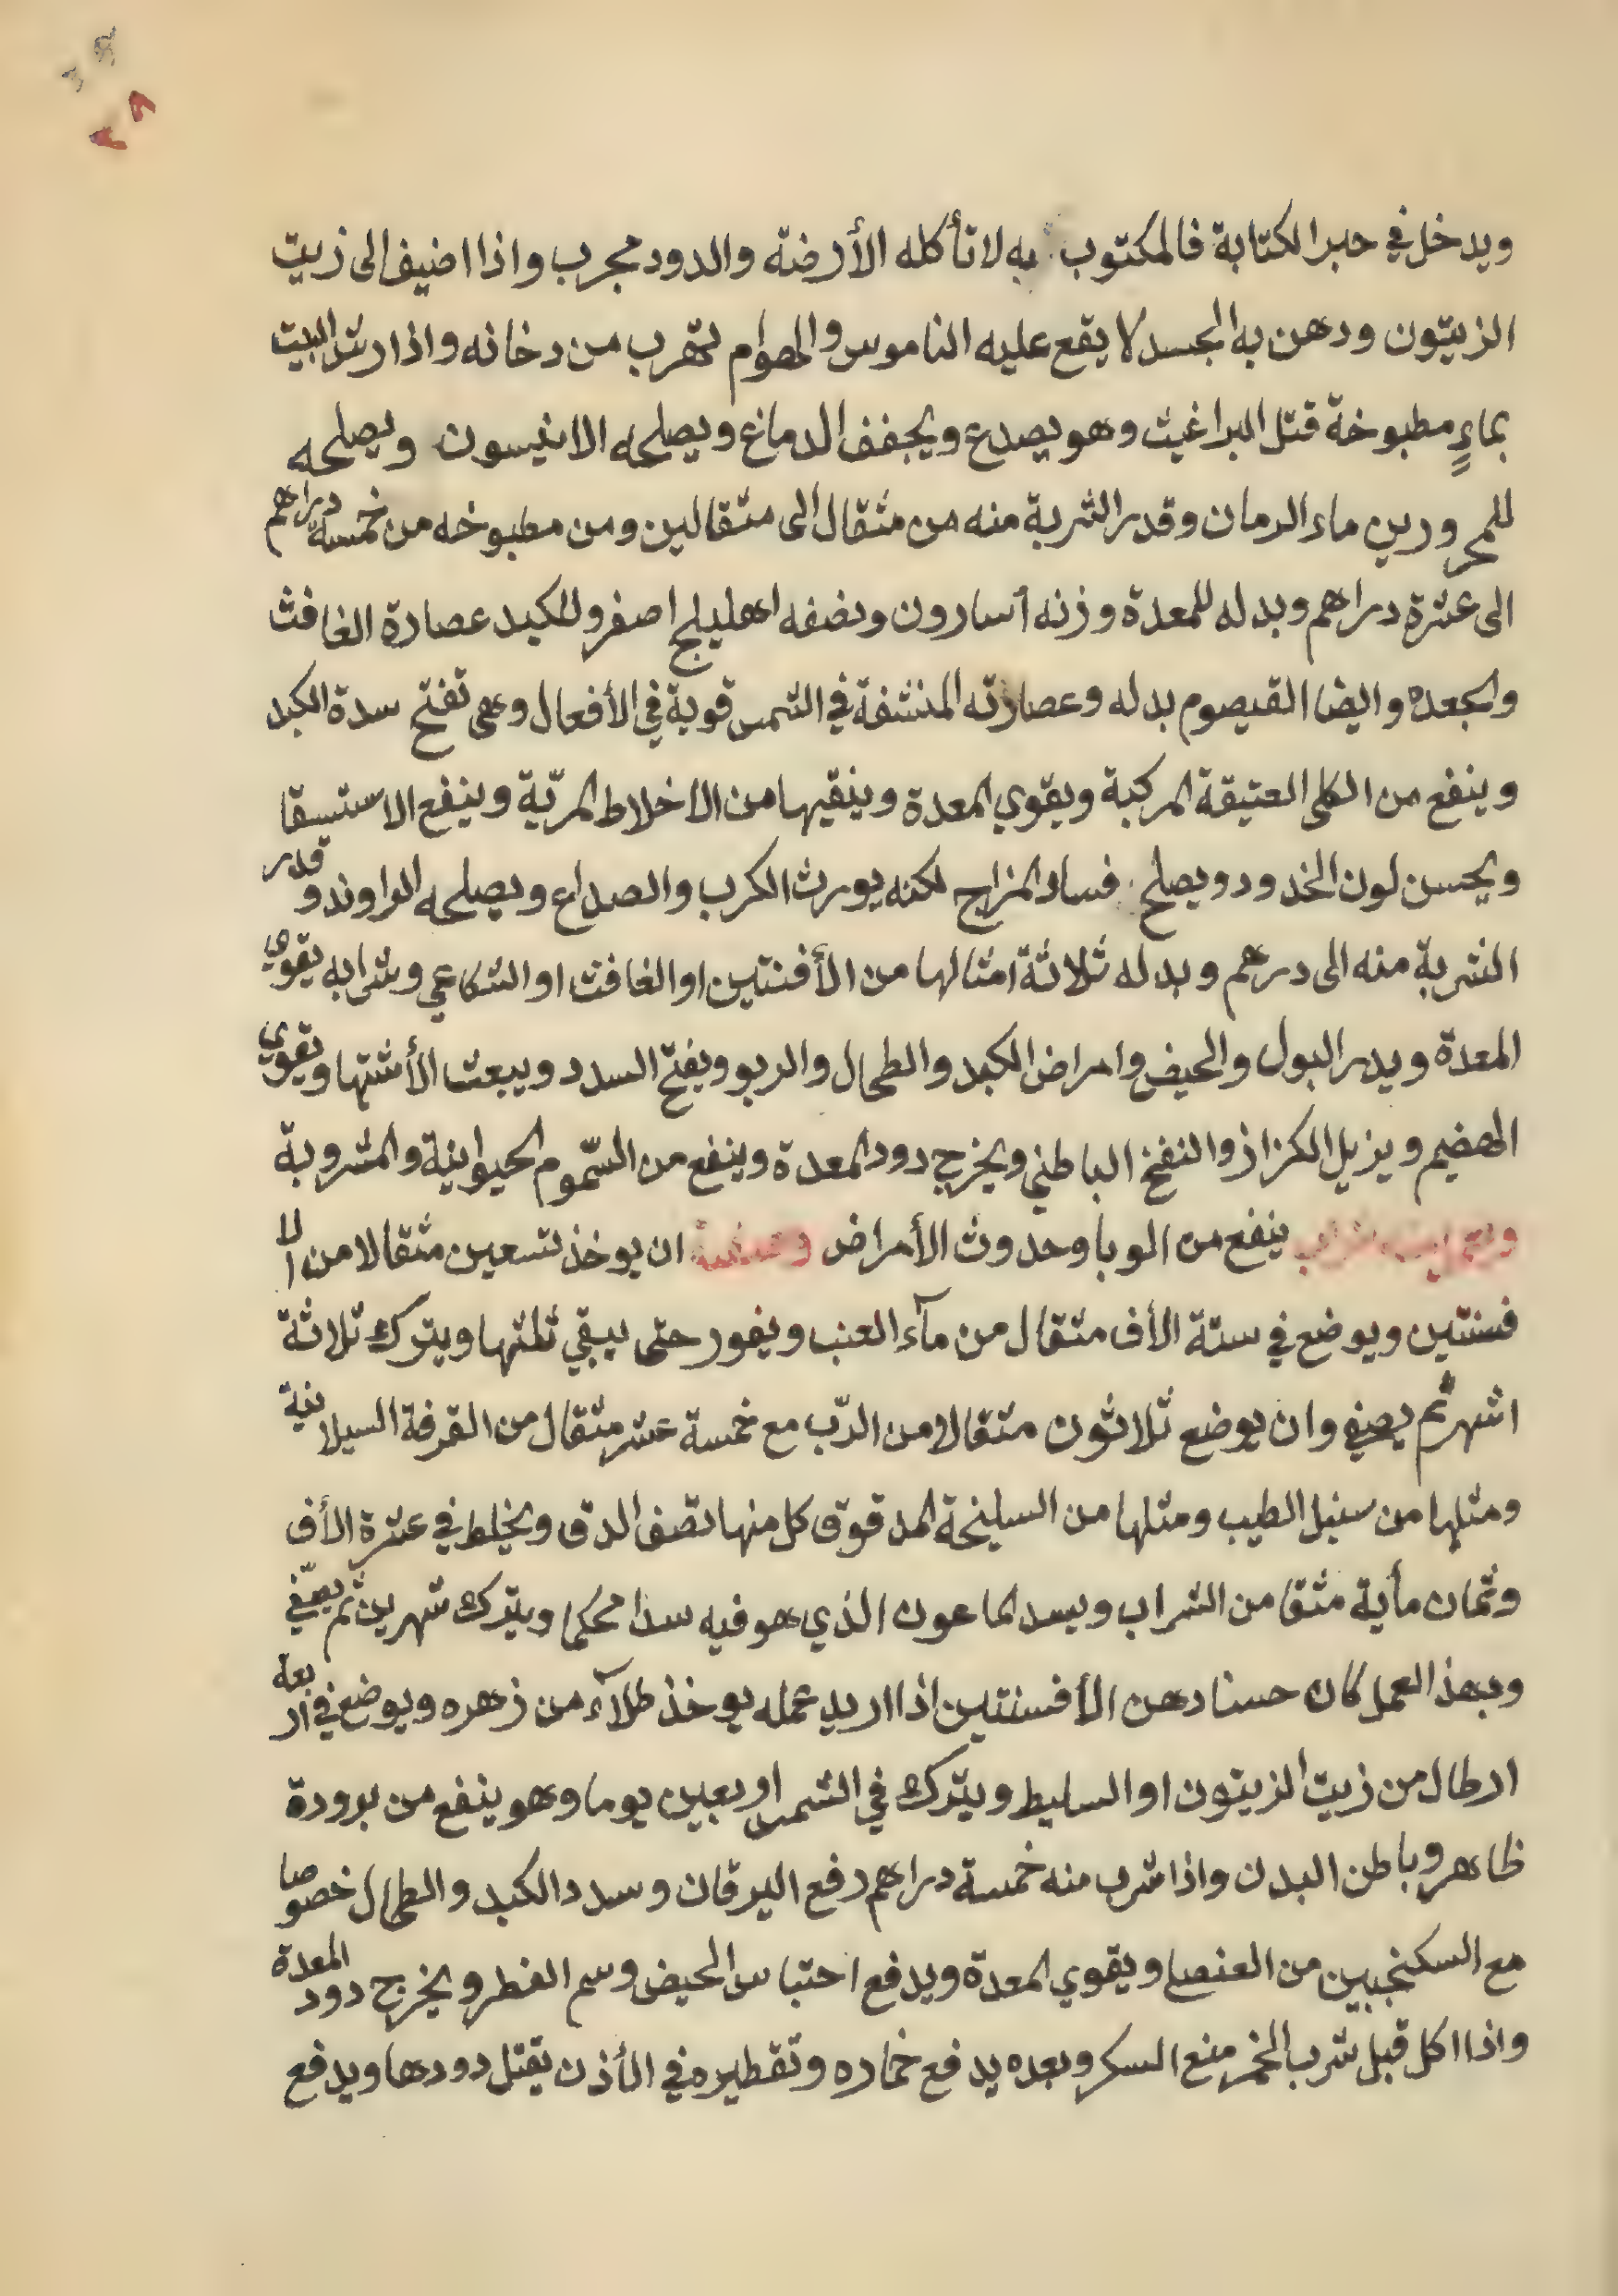 ٢٨
ويدخل في حبر الكتابة فالمكتوب به لا تأكله الأرضة والدود مجرب واذا اضيف الى زيت
الزيتون ودهن به الجسد لا يقع عليه الناموس والهوام تهرب من دخانه واذا رش البيت
بماءٍ مطبوخة قتل البراغيث وهو يصدع ويجفف الدماغ ويصلحه الانيسون ويصلحه
للمحرورين ماء الرمان وقدر الشربة منه من مثقال الى مثقالين ومن مطبوخه من خمسة دراهم
الى عشرة دراهم وبدله للمعدة وزنه اسارون ونصفه اهليلج اصفر وللكبد عصارة الغافث
والجعده وايضا القيصوم بدله وعصارته المنشفة في الشمس قوية في الأفعال وهى تفتح سدة الكبد
وينفع من الكلى العتيقة المركبة ويقوي المعدة وينقيها من الاخلاط المريّة وينفع الاستسقا
ويحسن لون الخدود ويصلح فساد المزاج لكنه يورث الكرب والصداع ويصلحه الراوند وقدر
الشربة منه الى درهم وبدله ثلاثة امثالها من الأفسنتين او الغافث او الشكاعي وشرابه يقوي
المعدة ويدر البول والحيض وامراض الكبد والطحال والربو ويفتح السدد ويبعث الأشتها ويقوي
الهضيم ويزيل الكزاز والنفخ الباطني ويخرج دود المعدة وينفع من السّموم الحيوانية والمشروبة
ينفع من الوبا وحدوث الأمراض ان يوخذ تسعين مثقالا من الا
فسنتين ويوضع في ستة الأف مثقال من مآء العنب ويفور حتى يبقي ثلثها ويترك ثلاثة
اشهر ثم يصفي وان يوضع ثلاثون مثقالا من الرّب مع خمسة عشر مثقال من القرفة السيلانية
ومثلها من سنبل الطيب ومثلها من السليخة المدقوق كل منها نصف الدق ويخلط في عشرة الأف
وثمان مأية مثقا من الشراب ويسد الماعون الذي هو فيه سدا محكما ويترك شهرين ثم يصّفي
وبهذ العمل كان حسنا دهن الأفسنتين اذا اريد عمله يوخذ طلآء من زهره ويوضع في اربعه
ارطال من زيت الزيتون او السليط ويترك في الشمس اربعين يوما وهو ينفع من برودة
ظاهر وباطن البدن واذا شرب منه خمسة دراهم دفع اليرقان وسدد الكبد والطحال خصوصا
مع السكنجبين من العنصل ويقوي المعدة ويدفع احتباس الحيض وسم الفطر ويخرج دود المعدة
واذا اكل قبل شرب الخمر منع السكر وبعده يدفع خماره وتقطيره في الأذن يقتل دودها ويدفع